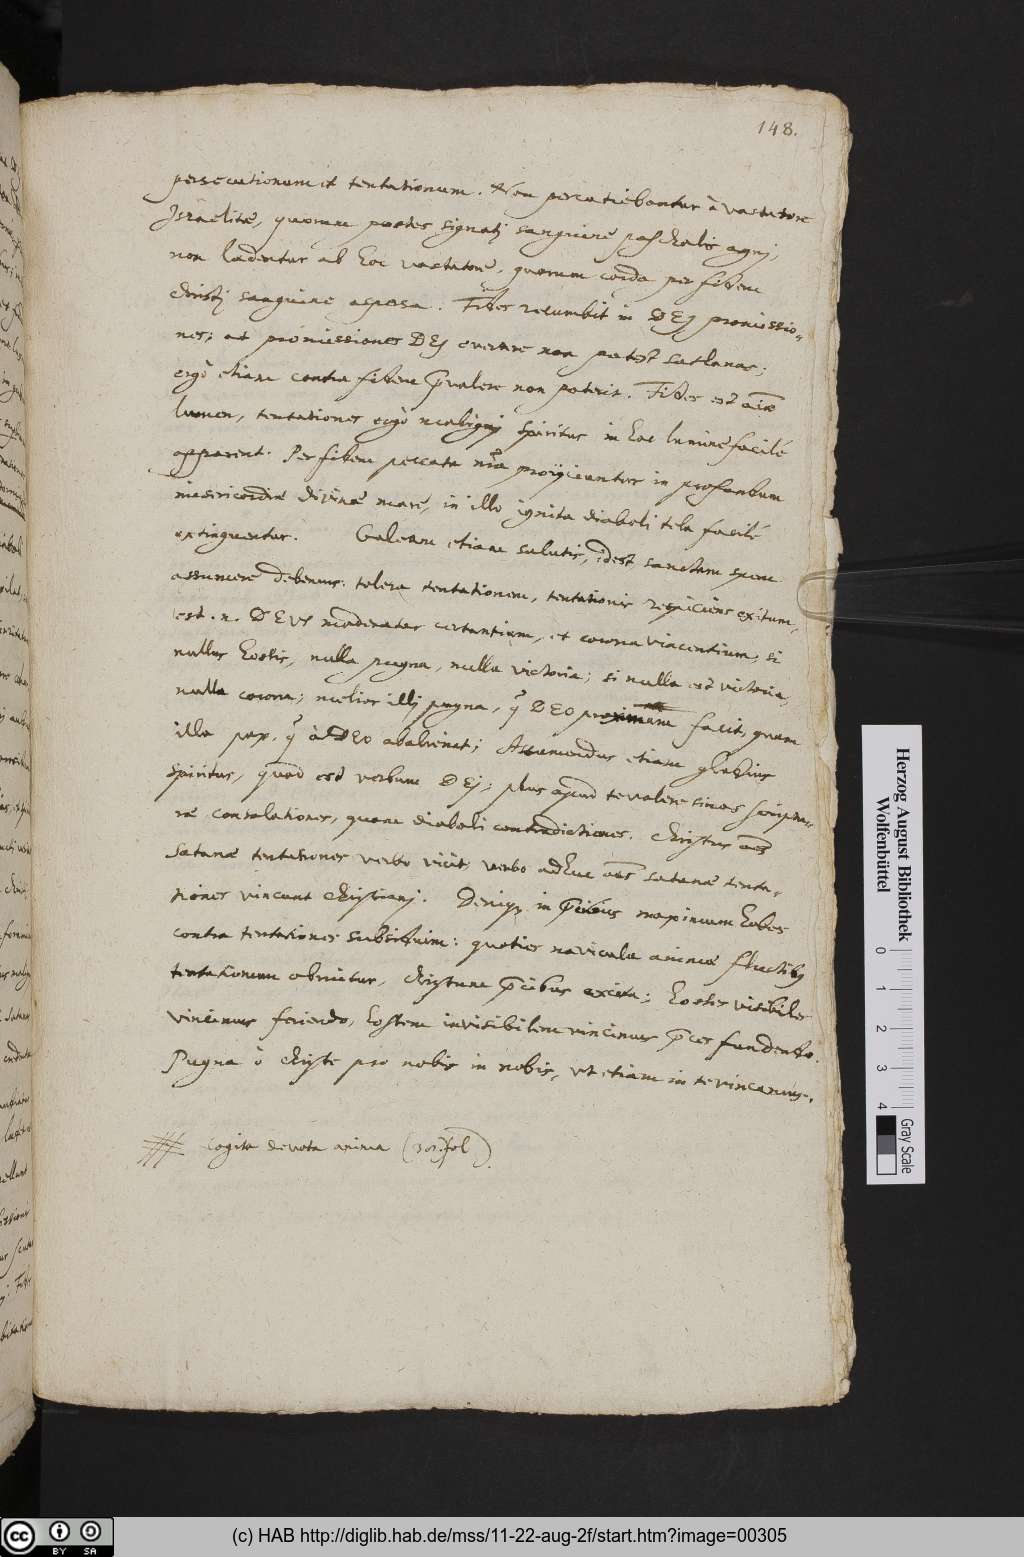 148.
persecutionum et tentationum. Non percutiebantur à vastatore
Israelitæ, quorum postes signati sanguine paschalis agni,
non læduntur ab hoc vastatore, quorum corda per fidem
Christi sanguine aspersa. Fides recumbit in DEI promissio-
nes; at promissiones DEI evertere non potest sathanas;
ergò etiam contra fidem p̃valere non poterit. Fides est aiæ
lumen, tentationes ergò maligni spiritus in hoc lumine facilè
apparent. Per fidem peccata nr̃a proijciuntur in profundum
misericordiæ divinæ mare, in illo ignita diaboli tela facilè
extinguentur. Galeam etiam salutis, idest sanctam spem
assumere debemus: tolera tentationem, tentationis respiciens exitum,
est .n. DEUS moderator certantium, et corona vincentium; si
nullus hostis, nulla pugna, nulla victoria; si nulla est victoria,
nulla corona; melior illi pugna, q̃ DEO proximum facit, quam
illa pax, q̃ à DEO abalienat; Assumendus etiam gladius
spiritus, quod est verbum DEI; plus apud te valere sinas scriptu-
ræ consolationes, quam diaboli contradictiones. Christus oẽs
satanæ tentationes verbo vicit, verbo adhuc oẽs satanæ tenta-
tiones vincunt Christiani. Deniq; in p̃cibus maximum habes
contra tentationes subsidium: quoties navicula animæ fluctibus
tentationum obruitur, Christum p̃cibus excita; hostes visibiles
vincimus feriendo, hostem invisibilem vincimus p̃ces fundendo.
Pugna ò Christe pro nobis in nobis, vt etiam in te vincamus.
Cogita devota anima ( fol. ).
Herzog August Bibliothek
Wolfenbüttel
0 1 2 3 4
Gray Scale
cc BY SA
(c) HAB http://diglib.hab.de/mss/11-22-aug-2f/start.htm?image=00305